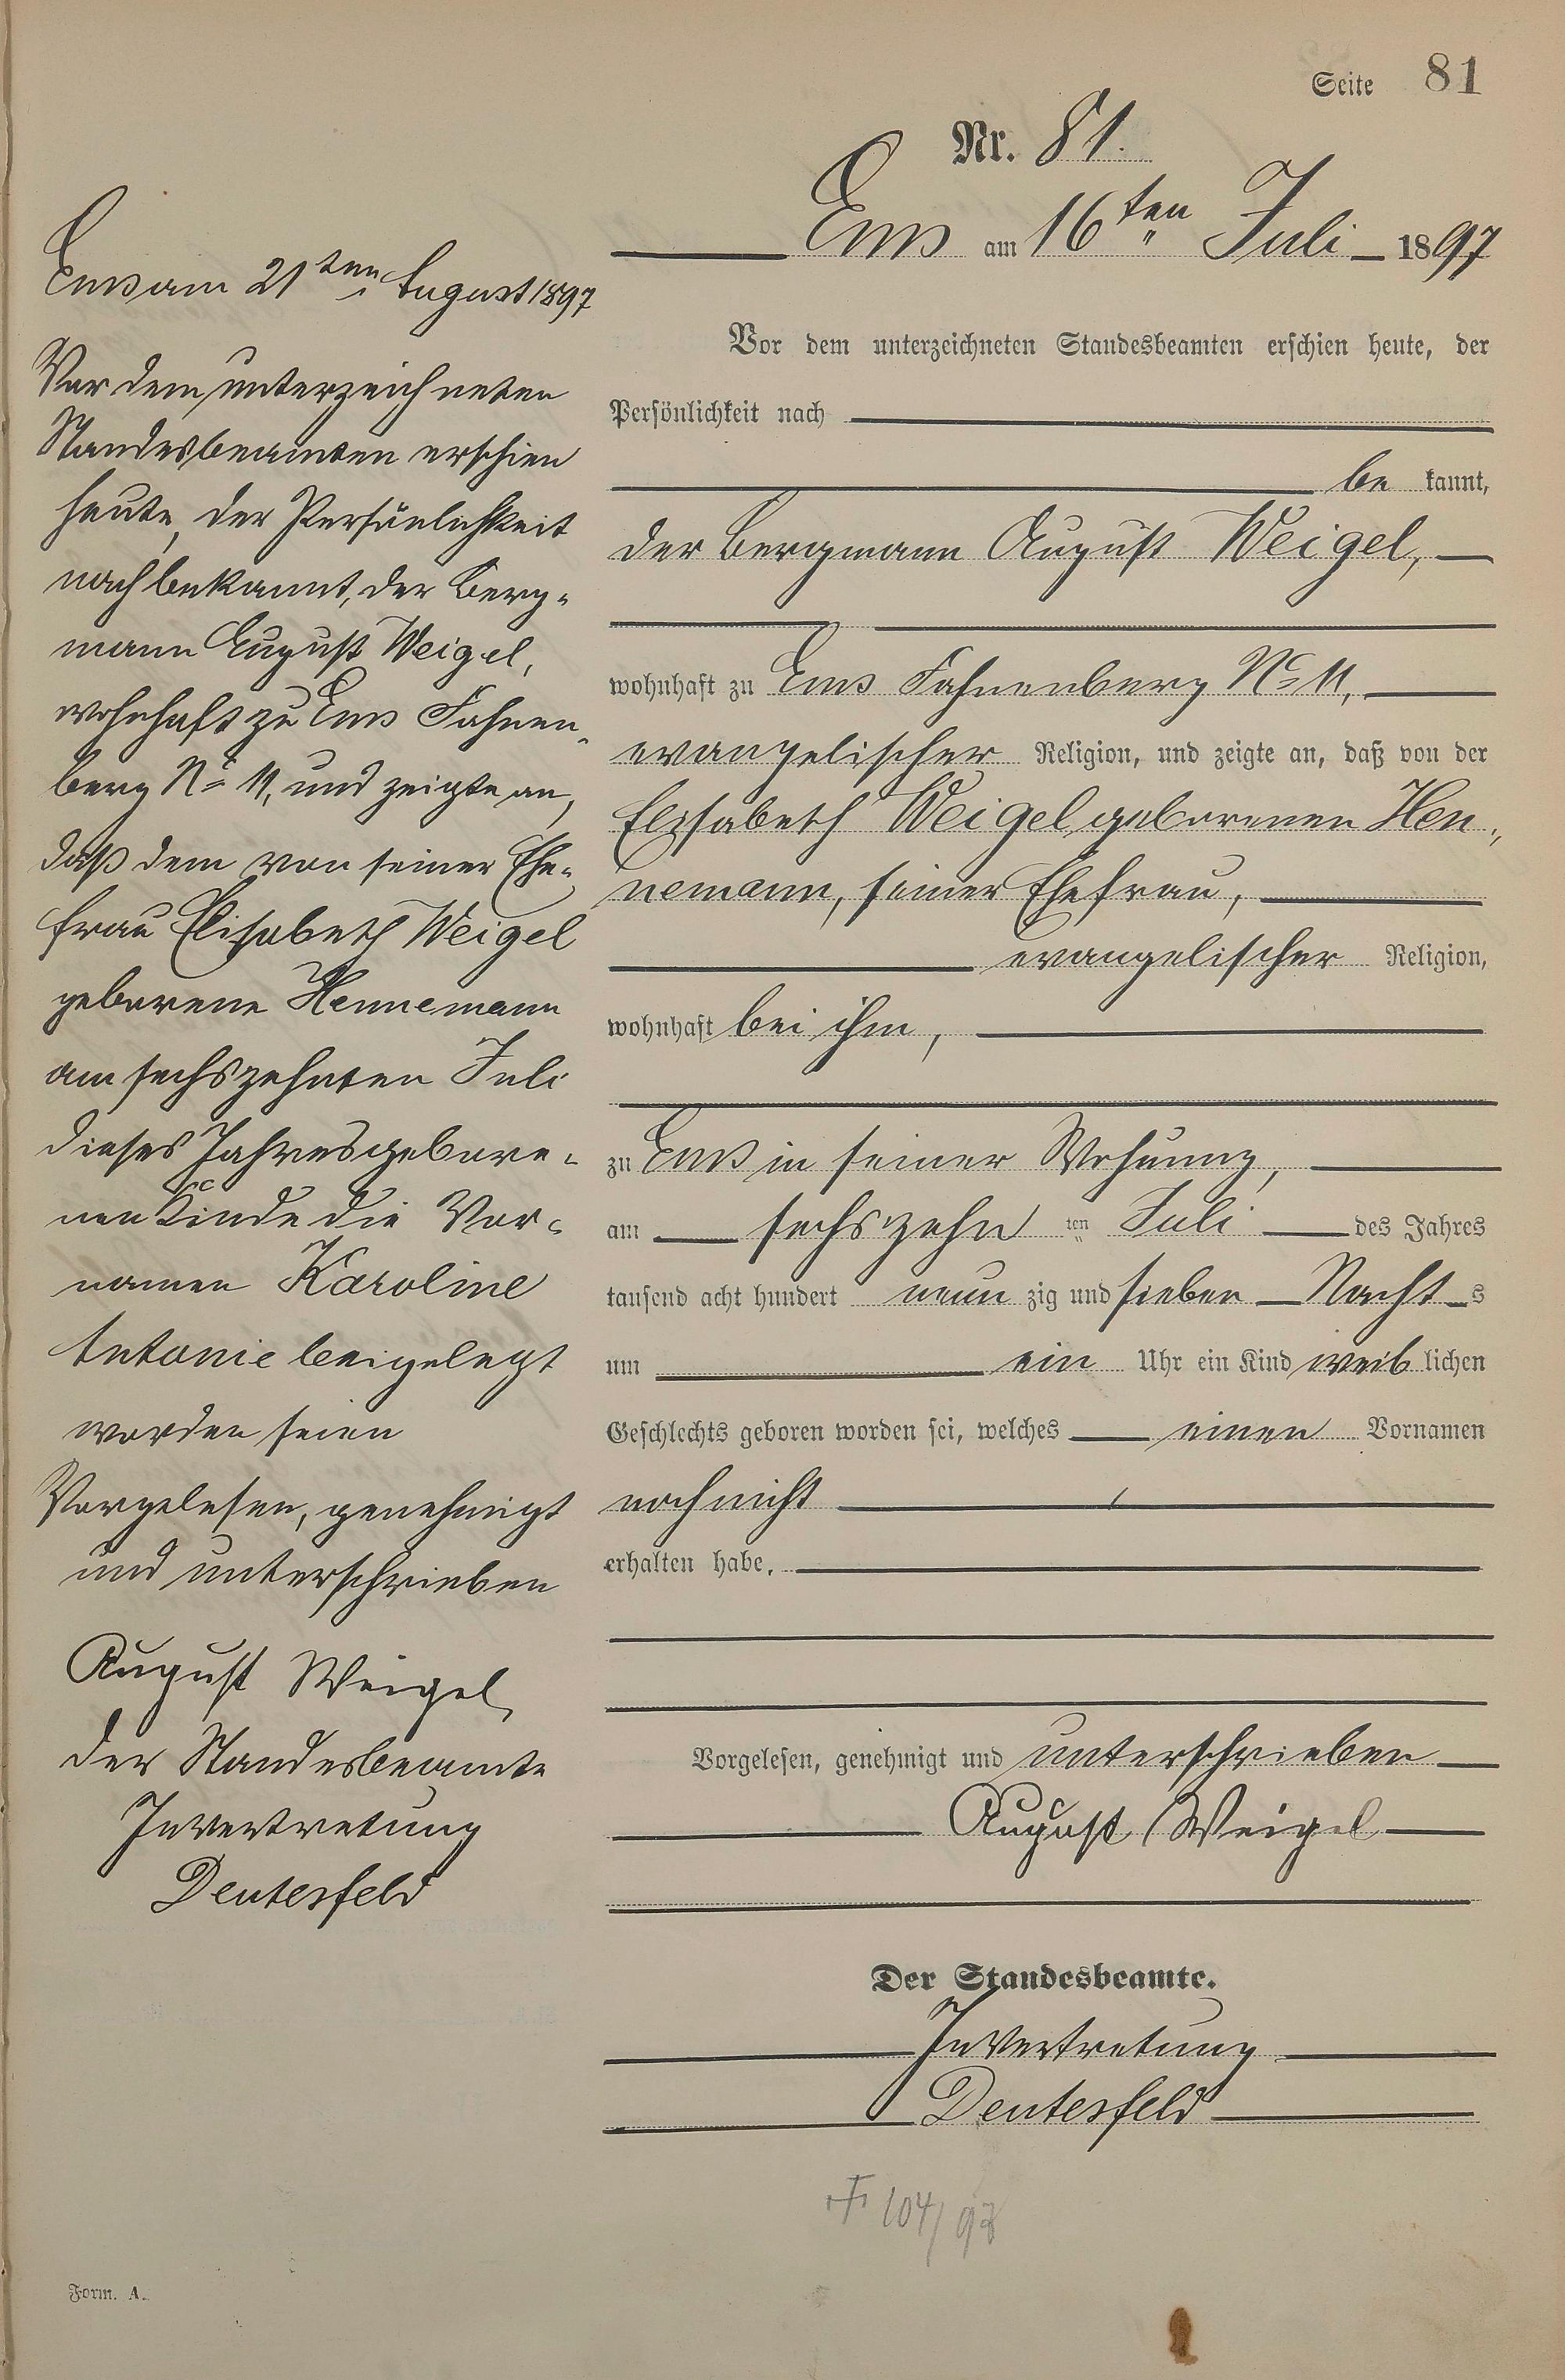 Seite 81
Nr. 81.
Ems am 16ten Juli 1897
Vor dem unterzeichneten Standesbeamten erschien heute, der
Persönlichkeit nach
be kannt,
der Bergmann August Weigel,
wohnhaft zu Ems Fahnenberg No 11,
evangelischer Religion, und zeigte an, daß von der
Elisabeth Weigel geborenen Hen„
nemann, seiner Ehefrau,
evangelischer Religion,
wohnhaft bei ihm,
zu Ems in seiner Wohnung,
am sechszehn ten Juli des Jahres
tausend acht hundert neun zig und sieben Nacht s
um ein Uhr ein Kind weib lichen
Geschlechts geboren worden sei, welches einen Vornamen
noch nicht
erhalten habe.
Vorgelesen, genehmigt und unterschrieben
August Weigel
Der Standesbeamte.
In Vertretung
Deutesfeld
F 104/97
Ems am 21ten August 1897
Vor dem unterzeichneten
Standesbeamten erschien
heute, der Persönlichkeit
nach bekannt, der Berg-
mann August Weigel,
wohnhaft zu Ems Fahnen„
berg No 11, und zeigte an,
daß dem von seiner Ehe-
frau Elisabeth Weigel
geborene Hennemann
am sechszehnten Juli
dieses Jahres gebore-
nen Kinde die Vor-
namen Karoline
Antonie beigelegt
worden seien
Vorgelesen, genehmigt
und unterschrieben
August Weigel
der Standesbeamte
In Vertretung
Deutesfeld
Form. A.